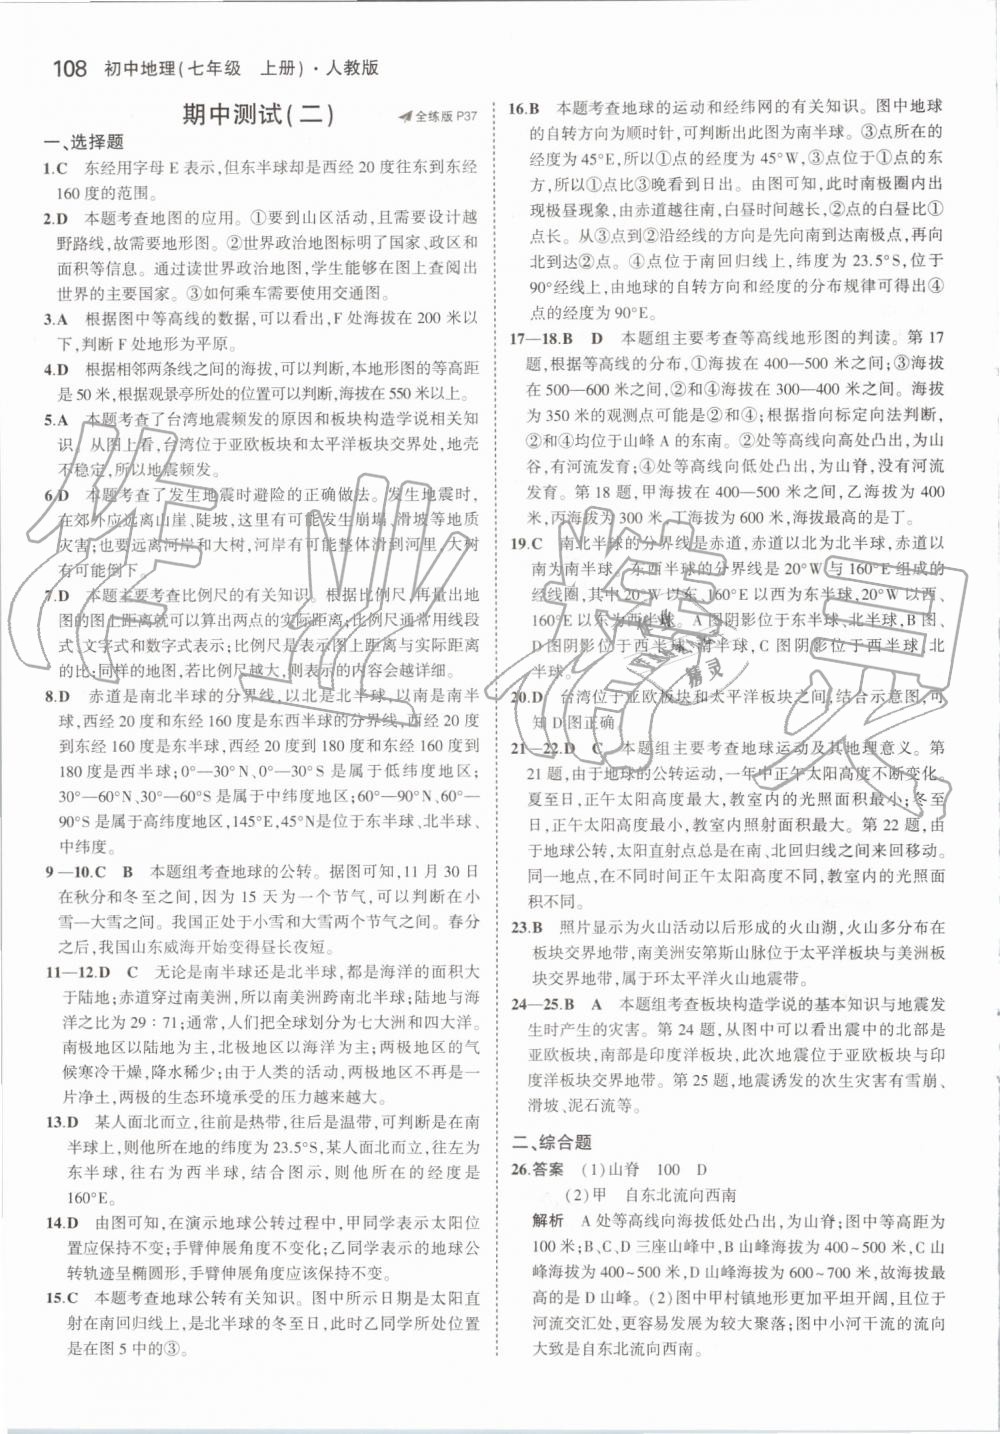 108 初中地理(七年级 上册)·人教版
期中测试(二)
全练版 P37
一、选择题
1.C 东经用字母 E 表示,但东半球却是西经 20 度往东到东经
160 度的范围。
2.D 本题考查地图的应用。①要到山区活动,且需要设计越
野路线,故需要地形图。②世界政治地图标明了国家、政区和
面积等信息。通过读世界政治地图,学生能够在图上查阅出
世界的主要国家。③如何乘车需要使用交通图。
3.A 根据图中等高线的数据,可以看出,F 处海拔在 200 米以
下,判断 F 处地形为平原。
4.D 根据相邻两条线之间的海拔,可以判断,本地形图的等高距
是 50 米,根据观景亭所处的位置可以判断,海拔在 550 米以上。
5.A 本题考查了台湾地震频发的原因和板块构造学说相关知
识。从图上看,台湾位于亚欧板块和太平洋板块交界处,地壳
不稳定,所以地震频发。
6.D 本题考查了发生地震时避险的正确做法。发生地震时,
在郊外应远离山崖、陡坡,这里有可能发生崩塌、滑坡等地质
灾害;也要远离河岸和大树,河岸有可能整体滑到河里,大树
有可能倒下。
7.D 本题主要考查比例尺的有关知识。根据比例尺,再量出地
图的图上距离就可以算出两点的实际距离;比例尺通常用线段
式、文字式和数字式表示;比例尺是图上距离与实际距离
的比;同样的地图,若比例尺越大,则表示的内容会越详细。
8.D 赤道是南北半球的分界线,以北是北半球,以南是南半
球,西经 20 度和东经 160 度是东西半球的分界线,西经 20 度
到东经 160 度是东半球,西经 20 度到 180 度和东经 160 度到
180 度是西半球;0°—30°N、0°—30°S 是属于低纬度地区;
30°—60°N、30°—60°S 是属于中纬度地区;60°—90°N、60°—
90°S 是属于高纬度地区,145°E,45°N是位于东半球、北半球、
中纬度。
9—10.C B 本题组考查地球的公转。据图可知,11 月 30 日
在秋分和冬至之间,因为 15 天为一个节气,可以得出在小
雪—大雪之间。我国正处于小雪和大雪两个节气之间。春分
之后,我国山东威海开始变得昼长夜短。
11—12.D C 无论是南半球还是北半球,都是海洋的面积大
于陆地;赤道穿过南美洲,所以南美洲跨南北半球;陆地与海
洋之比为 29∶71;通常,人们把全球划分为七大洲和四大洋。
南极地区以陆地为主,北极地区以海洋为主,两极地区的气
候寒冷干燥,降水稀少;由于人类的活动,两极地区已不是一
片净土,两极的生态环境承受的压力越来越大。
13.D 某人面北而立,往前是热带,往后是温带,可判断是在南
半球上,则他所在地的纬度为 23.5°S,某人面北而立,往左为
东半球,往右为西半球,结合图示,则他所在的经度是
160°E。
14.D 由图可知,在演示地球公转过程中,甲同学表示太阳位
置应保持不变;手臂伸展角度不变化;乙同学表示的地球公
转轨迹呈椭圆形,手臂伸展角度应该保持不变。
15.C 本题考查地球公转有关知识。图中所示日期是太阳直
射在南回归线上,是北半球的冬至日,此时乙同学所处位置
是在图 5 中的③。
16.B 本题考查地球的运动和经纬网的有关知识。图中地球
的自转方向为顺时针,可判断出此为南半球。③点所在的
经度为 45°E,则②点的经度为 45°W,③点位于①点的东
方,所以①点比③点晚看到日出。由图可知,此时南极圈内出
现极昼现象,由赤道越往南,白昼时间越长,②点的白昼比①
点长。从③点到②点沿经线的方向是先向南到达南极点,再向
北到达②点。④点位于南回归线上,纬度为 23.5°S,①点位于
90°E,由地球的自转方向和经度的分布规律可得出④
点的经度为 90°E。
17—18.B D 本题组主要考查等高线地形图的判读。第 17
题,根据等高线的分布,①海拔在 400—500 米之间;③海拔
在 500—600 米之间,②和④海拔在 300—400 米之间。海拔
为 350 米的观测点可能是②和④;根据指向标定向法判断,
②和④均位于山峰 A 的东南。②处等高线向高处凸出,为山
谷,有河流发育;④处等高线向低处凸出,为山脊,没有河流
发育。第 18 题,甲海拔在 400—500 米之间,乙海拔为 400
米,丙海拔为 300 米,丁海拔为 600 米,海拔最高的是丁。
19.C 南北半球的分界线是赤道,赤道以北为北半球,赤道以
南为南半球。东西半球的分界线是 20°W 与 160°E 组成的
经线圈,其中 20°W 以东、160°E 以西为东半球,20°W 以西、
160°E 以东为西半球。A图阴影位于东半球、北半球,B 图、
D 图阴影位于西半球、南半球,C 图阴影位于西半球、北
半球。
20.D 台湾位于亚欧板块和太平洋板块之间,结合示意图,可
知 D 图正确。
21—22.D C 本题组主要考查地球运动及其地理意义。第
21 题,由于地球的公转运动,一年中正午太阳高度不断变化。
夏至日,正午太阳高度最大,教室内的光照面积最小;冬至
日,正午太阳高度最小,教室内照射面积最大。第 22 题,由
于地球公转,太阳直射点总是在南、北回归线之间来回移动。
同一地点,在不同时间正午太阳高度不同,教室内的光照面
积不同。
23.B 照片显示为火山活动以后形成的火山湖,火山多分布在
板块交界地带,南美洲安第斯山脉位于太平洋板块与美洲板
块交界地带,属于环太平洋火山地震带。
24—25.B A 本题组考查板块构造学说的基本知识与地震发
生时产生的灾害。第 24 题,从图中可以看出震中的北部是
亚欧板块,南部是印度洋板块,此次地震位于亚欧板块与印
度洋板块交界地带。第 25 题,地震诱发的次生灾害有雪崩、
滑坡、泥石流等。
二、综合题
26.答案 (1)山脊 100 D
(2)甲 自东北流向西南
解析 A 处等高线向海拔低处凸出,为山脊;图中等高距为
100 米;B、C、D 三座山峰中,B 山峰海拔为 400~500 米,C 山
峰海拔为 400~500 米,D 山峰海拔为 600~700 米,故海拔最
高的是 D 山峰。(2)图中甲村镇地形更加平坦开阔,且位于
河流交汇处,更容易发展为较大聚落;图中小河干流的流向
大致是自东北流向西南。